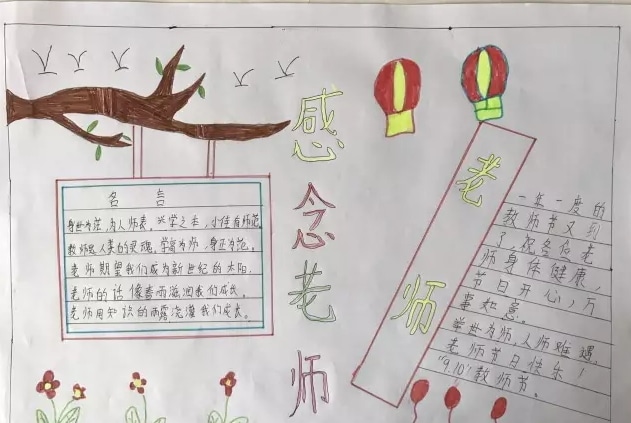 感念老师
名言
为人师表
学高为师，身正为范。
老师期望我们成为新世纪的太阳.
老师的话像春雨滋润我们成长.
老师用知识的雨露浇灌我们成长.
老师
一年一度的
教师节又到
了，祝各位老
师身体健康，
节日开心，万
事如意。
举世为师，人师难遇，
老师节日快乐！
"9.10"教师节。